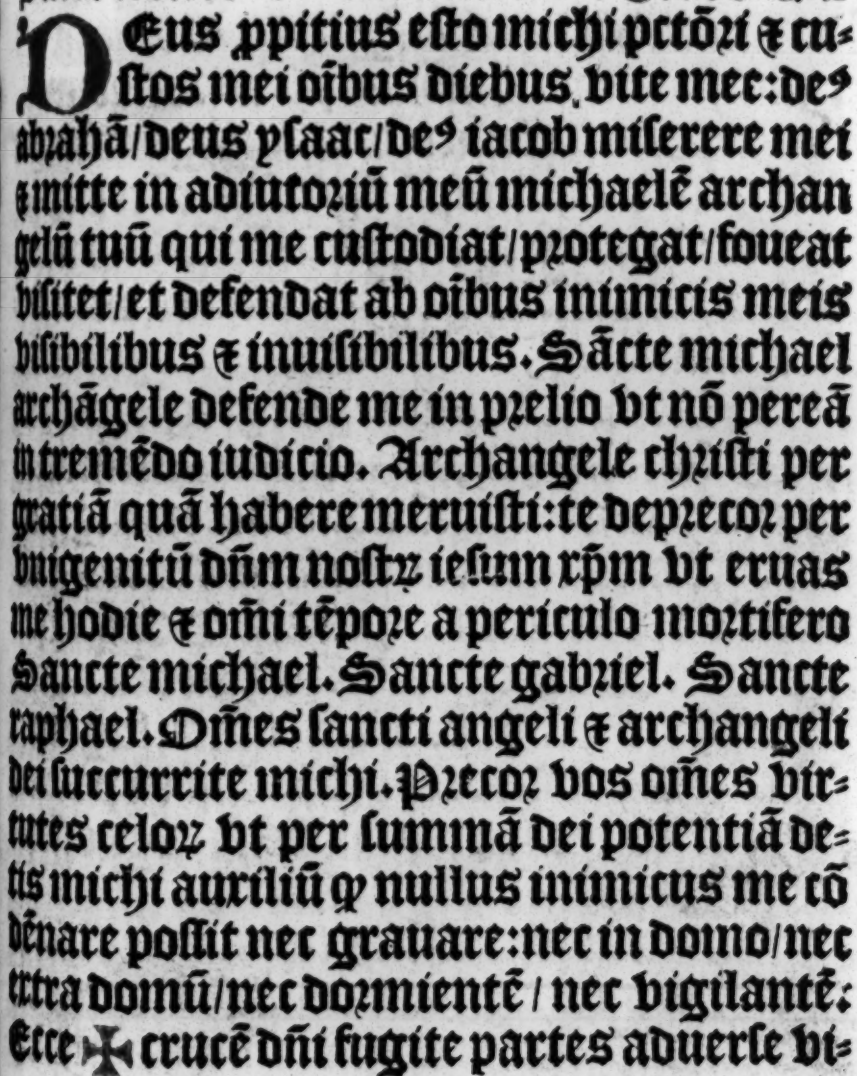 DEus ꝓpitius esto michi pctõꝛi ⁊ cu⸗
stos mei oĩbus diebus. vite mee:deꝰ
abꝛahã/deus ysaac/deꝰ iacob miserere mei
⁊ mitte in adiutoꝛiũ meũ michaelẽ archan
gelũ tuũ qui me custodiat/pꝛotegat/foueat
visitet/et defendat ab oĩbus inimicis meis
visibilibus ⁊ inuisibilibus. Sãcte michael
archãgele defende me in pꝛelio vt nõ pereã
in tremẽdo iudicio. Archangele chꝛisti per
gratiã quã habere meruisti:te depꝛecoꝛ per
vnigenitũ dñm nostꝝ iesum xp̃m vt eruas
me hodie ⁊ om̃i tẽpoꝛe a periculo moꝛtifero
Sancte michael. Sancte gabꝛiel. Sancte
raphael. Om̃es sancti angeli ⁊ archangeli
dei succurrite michi. Pꝛecoꝛ vos om̃es vir⸗
tutes celoꝝ vt per summã dei potentiã de⸗
tis michi auxiliũ ꝙ nullus inimicus me cõ
dẽnare possit nec grauare:nec in domo/nec
extra domũ/nec doꝛmientẽ/ nec vigilantẽ:
Ecce ✠ crucẽ dñi fugite partes aduerse vi⸗